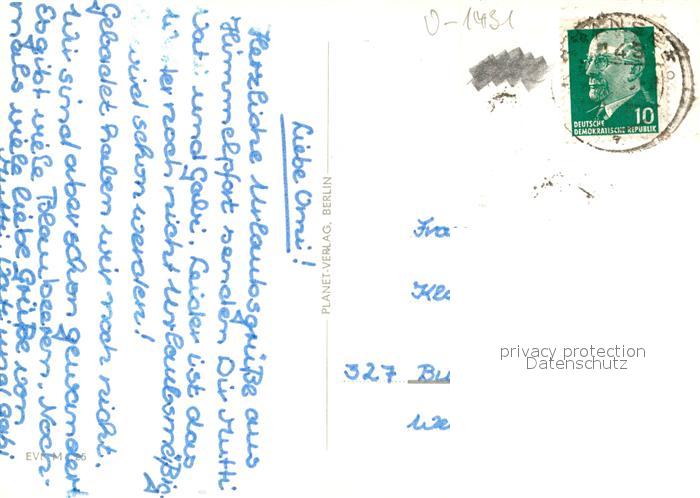 Liebe Omi!
Herzliche Urlaubsgrüße aus
Himmelpfort senden Dir Mutti
Vati und Gabi. Leider ist das
noch nicht urlaubsmäßig
wird schon werden!
Gebadet haben wir noch nicht.
Wir sind aber schon gewandert.
Es gibt viele Blaubeeren. Noch-
mals viele liebe Grüße von
Mutti, Vati und Gabi
EVP M
PLANET-VERLAG, BERLIN
0-1431
10
DEUTSCHE
DEMOKRATISCHE REPUBLIK
Fra
Kle
327 Bu
We
privacy protection
Datenschutz